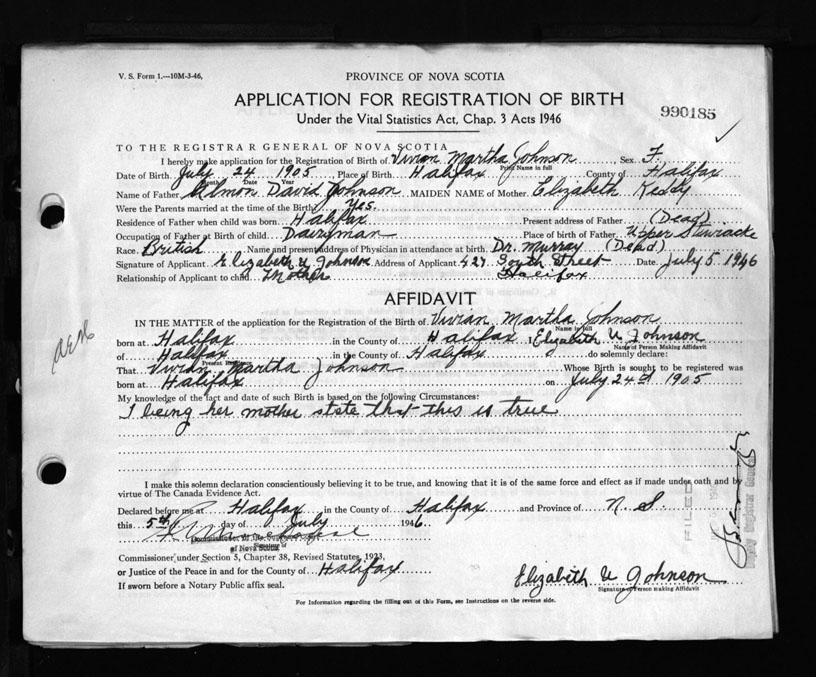 V. S. Form 1.—10M-3-46,
PROVINCE OF NOVA SCOTIA
APPLICATION FOR REGISTRATION OF BIRTH
990185
Under the Vital Statistics Act, Chap. 3 Acts 1946
TO THE REGISTRAR GENERAL OF NOVA SCOTIA
I hereby make application for the Registration of Birth of Vivian Martha Johnson Sex F.
Print Name in full
Date of Birth July 24 1905 Place of Birth Halifax County of Halifax
Month Date Year
Name of Father David Johnson MAIDEN NAME of Mother Elizabeth Keddy
Were the Parents married at the time of the Birth Yes.
Residence of Father when child was born Halifax Present address of Father (Dead)
Occupation of Father at Birth of child Dairyman Place of birth of Father Upper
Race British Name and present address of Physician in attendance at birth Dr. Murray (Dead)
Signature of Applicant Elizabeth U Johnson Address of Applicant 427 South Street Date July 5 1946
Relationship of Applicant to child Mother Halifax
AFFIDAVIT
IN THE MATTER of the application for the Registration of the Birth of Vivian Martha Johnson
Name in full
born at Halifax in the County of Halifax I Elizabeth U Johnson
Name of Person Making Affidavit
of Halifax in the County of Halifax do solemnly declare:
That Vivian Martha Johnson Whose Birth is sought to be registered was
born at Halifax on July 24th 1905
My knowledge of the fact and date of such Birth is based on the following Circumstances:
I being her mother state that this is true
I make this solemn declaration conscientiously believing it to be true, and knowing that it is of the same force and effect as if made under oath and by
virtue of The Canada Evidence Act.
Declared before me at Halifax in the County of Halifax and Province of N. S.
this 5th day of July 1946.
of Nova Scotia
Commissioner under Section 5, Chapter 38, Revised Statutes, 1923,
or Justice of the Peace in and for the County of Halifax
Elizabeth U Johnson
Signature of Person making Affidavit
If sworn before a Notary Public affix seal.
For Information regarding the filling out of this Form, see Instructions on the reverse side.
FILED
Deputy Registrar General